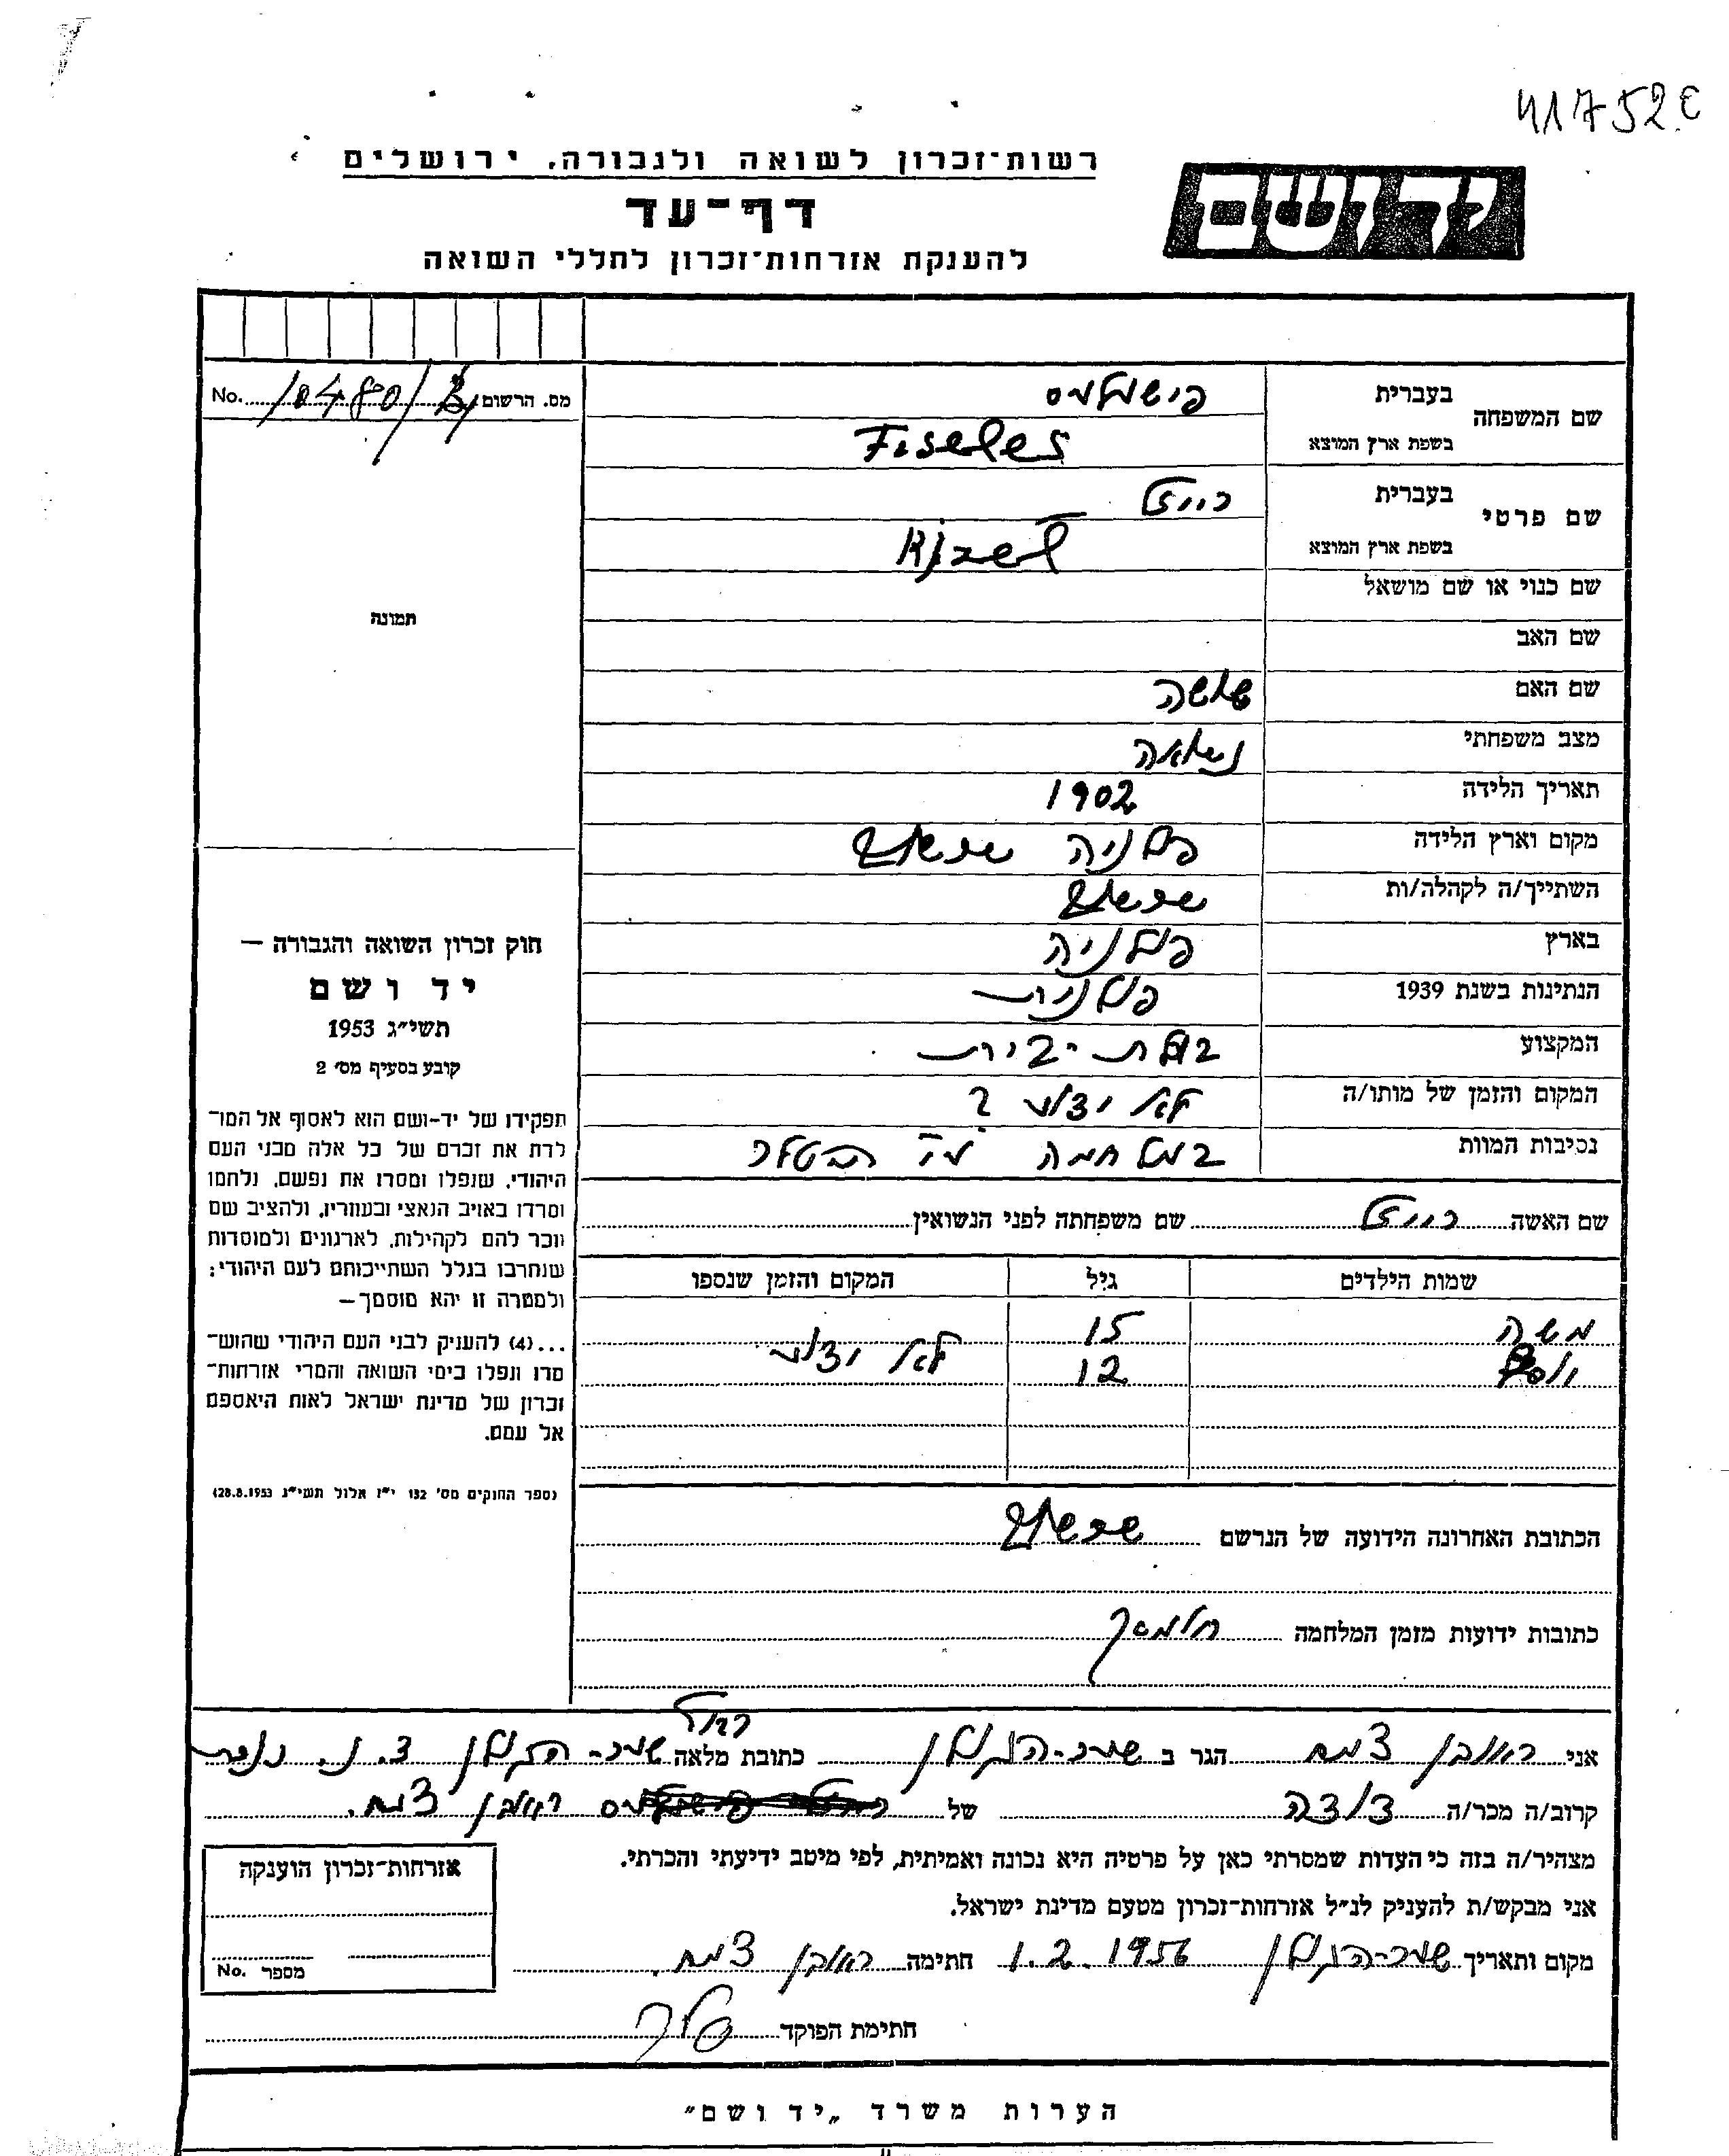 417520
רשות־זכרון לשואה ולגבורה, ירושלים
יד ושם
דף־עד
להענקת אזרחות־זכרון לחללי השואה
מס. הרשום No. 10480/
שם המשפחה בעברית פישלס
בשפת ארץ המוצא Fiseles
שם פרטי בעברית רייזל
בשפת ארץ המוצא Rizel
שם כנוי או שם מושאל
שם האב
שם האם שושה
מצב משפחתי נשואה
תאריך הלידה 1902
מקום וארץ הלידה פולניה
השתייך/ה לקהלה/ות
בארץ פולניה
הנתינות בשנת 1939 פולנית
המקצוע בעלת
המקום והזמן של מותו/ה לא ידוע ?
נסיבות המוות במלחמה
שם האשה רייזל שם משפחתה לפני הנשואין
שמות הילדים גיל המקום והזמן שנספו
משה 15
12 לא ידוע
הכתובת האחרונה הידועה של הנרשם
כתובות ידועות מזמן המלחמה
תמונה
חוק זכרון השואה והגבורה —
יד ושם
תשי״ג 1953
קובע בסעיף מס׳ 2
תפקידו של יד־ושם הוא לאסוף אל המו־
לדת את זכרם של כל אלה מבני העם
היהודי, שנפלו ומסרו את נפשם, נלחמו
ומרדו באויב הנאצי ובעוזריו, ולהציב שם
וזכר להם לקהילות, לארגונים ולמוסדות
שנחרבו בגלל השתייכותם לעם היהודי;
ולמטרה זו יהא מוסמך—
...(4) להעניק לבני העם היהודי שהוש־
מדו ונפלו בימי השואה והמרי אזרחות־
זכרון של מדינת ישראל לאות היאספם
אל עמם.
(ספר החוקים מס׳ 132 י״ז אלול תשי״ג 28.8.1953)
אני ראובן צמח הגר ב שער-הגולן כתובת מלאה שער-הגולן
קרוב/ה מכר/ה דודה של ראובן צמח.
מצהיר/ה בזה כי העדות שמסרתי כאן על פרטיה היא נכונה ואמיתית, לפי מיטב ידיעתי והכרתי.
אני מבקש/ת להעניק לנ״ל אזרחות־זכרון מטעם מדינת ישראל.
מקום ותאריך שער-הגולן 1.2.1956 חתימה ראובן צמח.
חתימת הפוקד
אזרחות־זכרון הוענקה
מספר No.
הערות משרד „יד ושם״